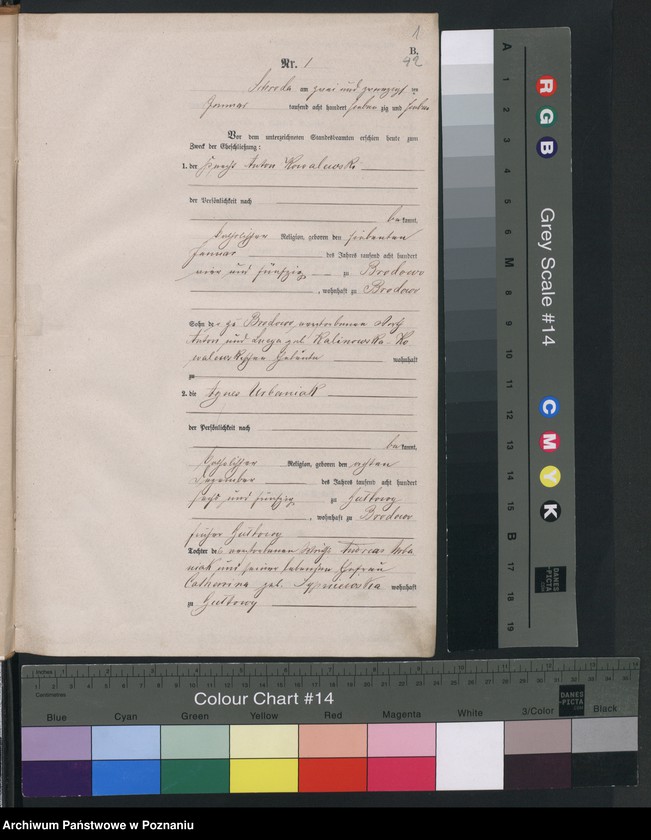 1
B.
42
Nr. 1
Schroda am zwei und zwanzigsten
Januar tausend acht hundert sieben zig und sieben
Vor dem unterzeichneten Standesbeamten erschien heute zum
Zweck der Eheschließung:
1. der Knecht Anton Kowalewski
der Persönlichkeit nach
be kannt,
katholischer Religion, geboren den siebenten
Januar des Jahres tausend acht hundert
vier und fünfzig zu Brodowo
, wohnhaft zu Brodowo
Sohn der zu Brodowo verstorbenen
Anton und Lucya geb. Kalinowska Ko
walewskischen Eheleute wohnhaft
zu
2. die Agnes Urbaniak
der Persönlichkeit nach
be kannt,
katholischer Religion, geboren den achten
Dezember des Jahres tausend acht hundert
sechs und fünfzig zu Gultowy
, wohnhaft zu Brodowo
früher Gultowy
Tochter des verstorbenen Andreas Urba
niak und seiner lebenden Ehefrau
Catharina geb. wohnhaft
zu Gultowy
A 1 2 3 4 5 6 M 8 9 10 11 12 13 14 15 B 17 18 19
R G B
Grey Scale #14
C M Y K
DANES
-PICTA
.COM
Inches 1 2 3 4 5 6 7 8 9 10 11 12 13 14
Centimetres
Colour Chart #14
DANES
-PICTA
.COM
Blue Cyan Green Yellow Red Magenta White 3/Color Black
Archiwum Państwowe w Poznaniu